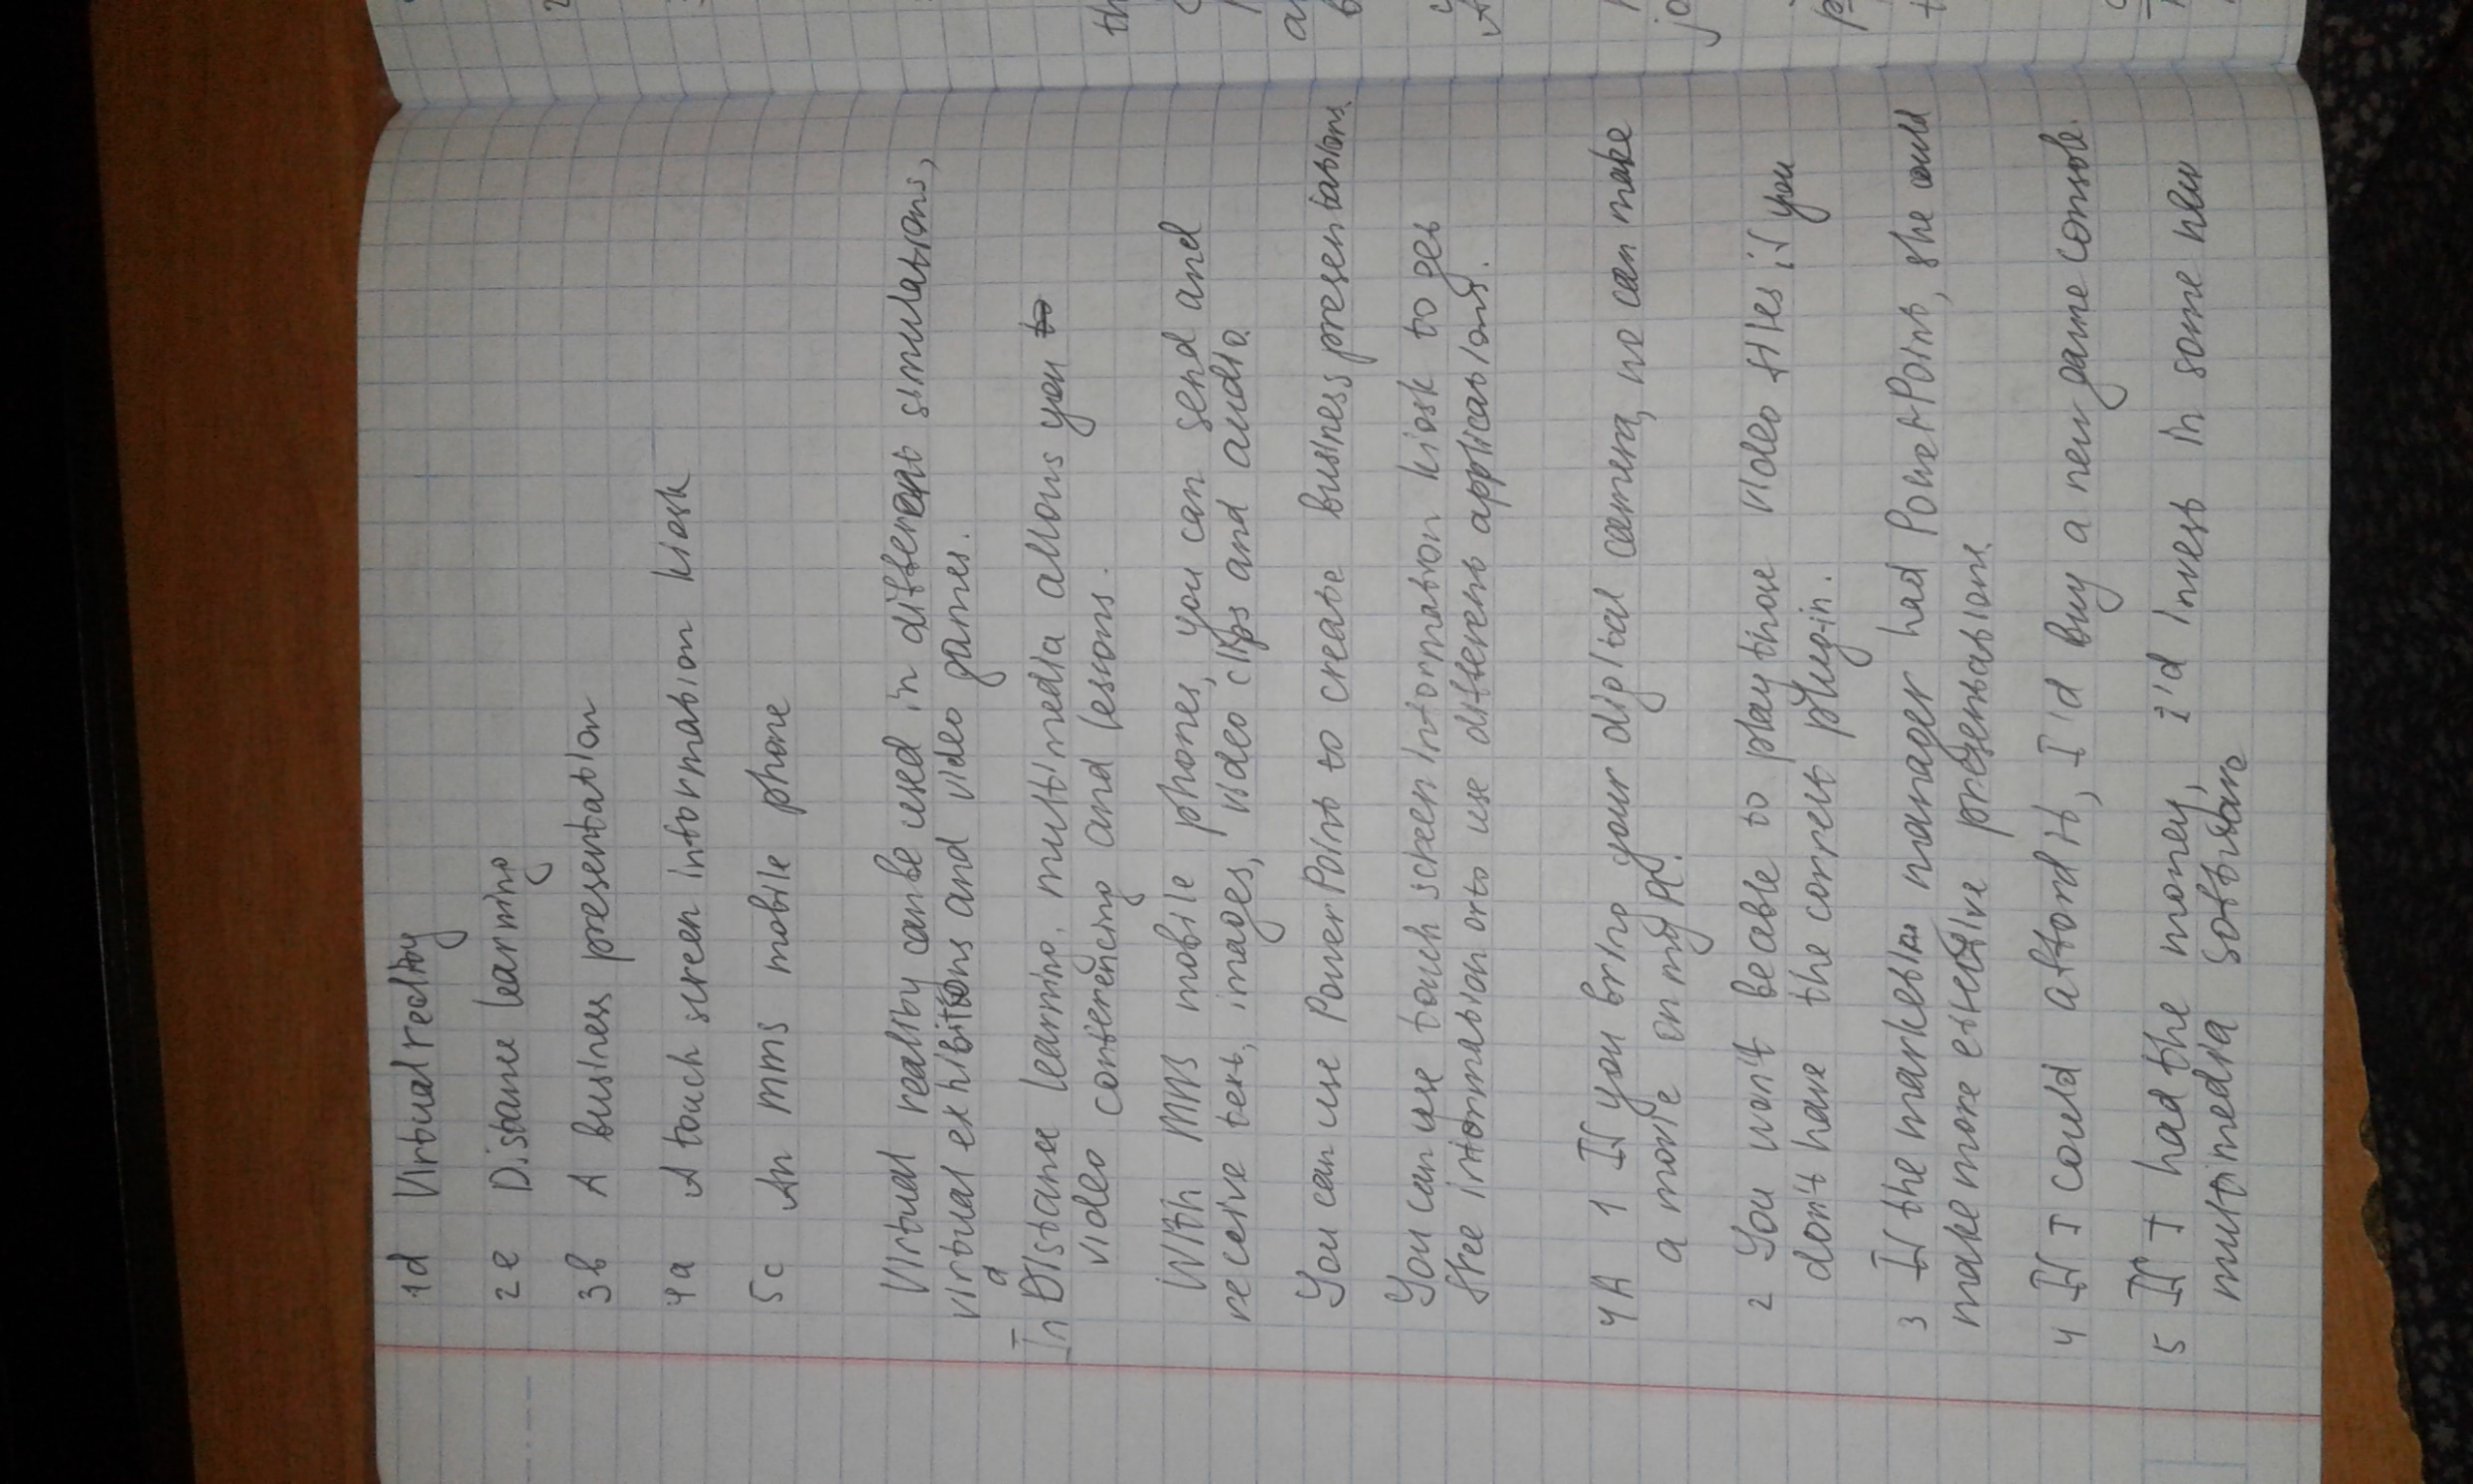 1d Virtual reality
2e Distance learning
3b A business presentation
4a A touch screen information kiosk
5c An mms mobile phone
Virtual reality can be used in different simulations,
virtual exhibitions and video games.
In Distance learning, multimedia allows you to
video conferencing and lessons.
With MMS mobile phones, you can send and
receive text, images, video clips and audio.
You can use PowerPoint to create business presentations
You can use touch screen information kiosk to get
free information or to use different applications.
4A 1 If you bring your digital camera, we can make
a movie on my PC.
2 You won't be able to play those video files if you
don't have the correct plug-in.
3 If the marketing manager had PowerPoint, she could
make more effective presentations
4 If I could afford it, I'd buy a new game console.
5 If I had the money, I'd invest in some new
multimedia software